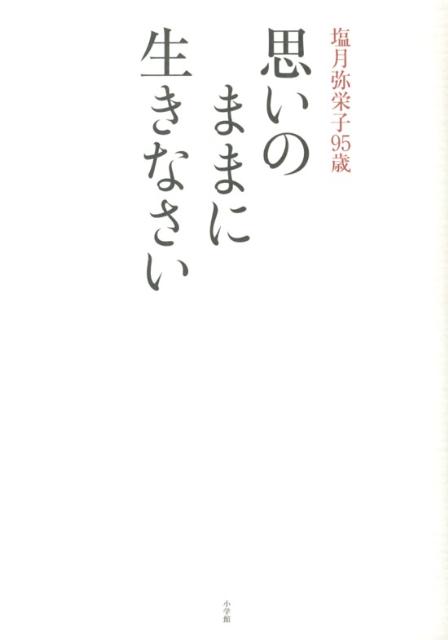 塩月弥栄子95歳
思いの
ままに
生きなさい
小学館